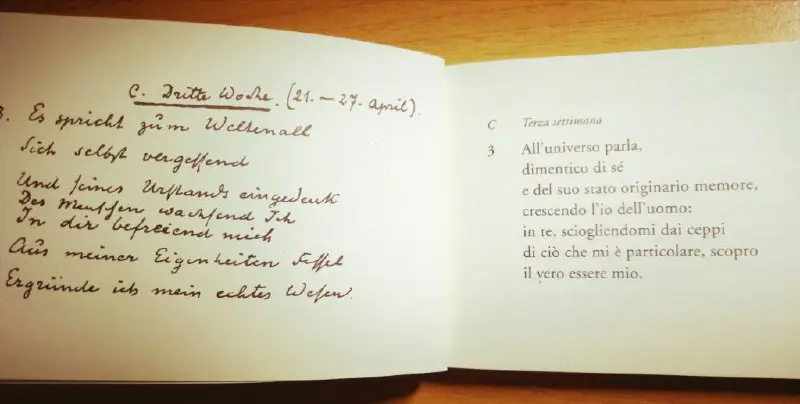 C. Dritte Woche. (21. — 27. April).
3. Es spricht zum Weltenall
Sich selbst vergessend
Und seines Urstands eingedenk
Des Menschen wachsend Ich
In dir befreiend mich
Aus meiner Eigenheiten Fessel
Ergründe ich mein echtes Wesen.
C Terza settimana
3 All'universo parla,
dimentico di sé
e del suo stato originario memore,
crescendo l'io dell'uomo:
in te, sciogliendomi dai ceppi
di ciò che mi è particolare, scopro
il vero essere mio.